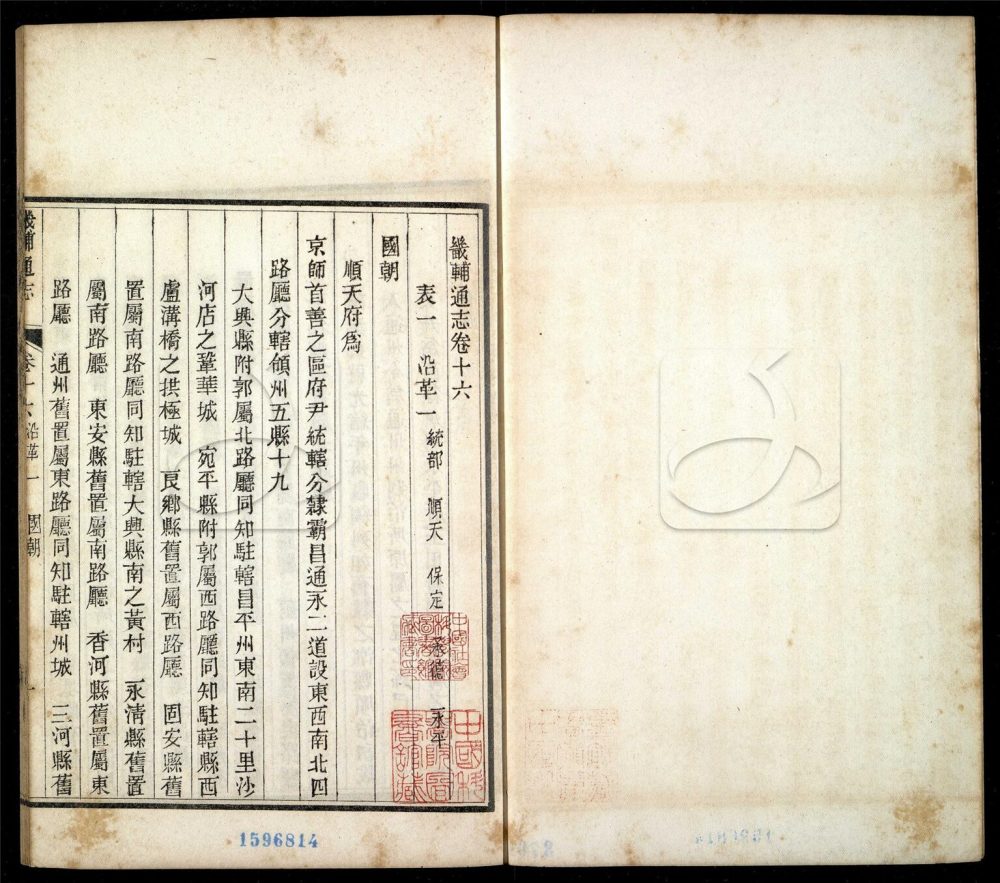 畿輔通志卷十六
表一　沿革一　統部　順天　保定　承德　永平
國朝
順天府爲
京師首善之區府尹統轄分隸霸昌通永二道設東西南北四
路廳分轄領州五縣十九
大興縣附郭屬北路廳同知駐轄昌平州東南二十里沙
河店之鞏華城　宛平縣附郭屬西路廳同知駐轄縣西
盧溝橋之拱極城　良鄉縣舊置屬西路廳　固安縣舊
置屬南路廳同知駐轄大興縣南之黃村　永清縣舊置
屬南路廳　東安縣舊置屬南路廳　香河縣舊置屬東
路廳　通州舊置屬東路廳同知駐轄州城　三河縣舊
畿輔通志　卷十六　沿革一　國朝
1596814